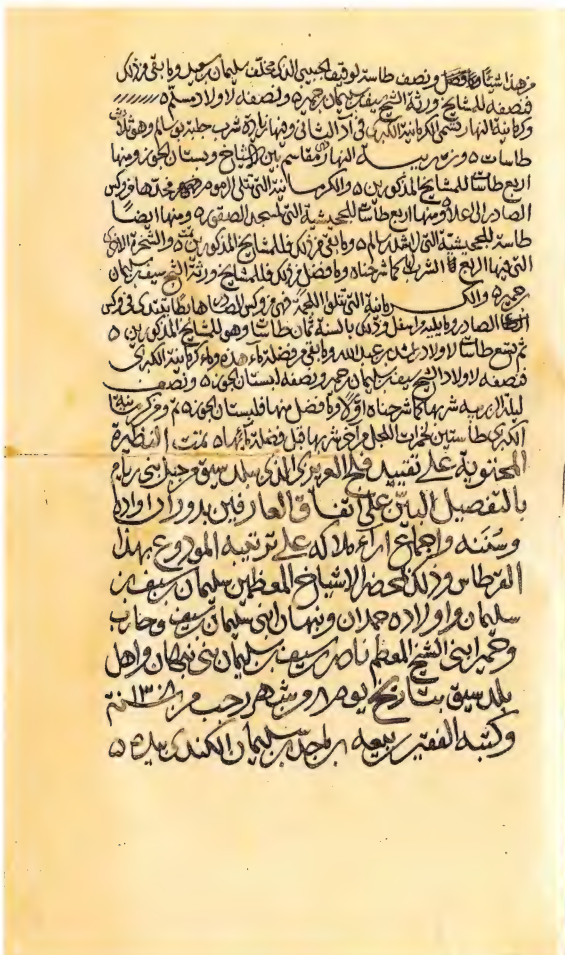 من هذا شيئا وما فضل ونصف طاسة لوقيف الحبيبي الذي مخلف سليمان بن سعيد وما بقي فمن ذلك
فنصفه للمشايخ ورثة الشيخ سيف بن سليمان بن حمير ٥ ونصفه لاولاد مسلم ٥
وكرمانية النهار تسمى الكرمانية الكبرى في آد الثاني ومنها زيادة شرب جلبة بو سالم وهو ثلاث
طاسات ٥ ومن ربيعة النهار مقاسم بين المشايخ وبستان الحوز ومنها
اربع طاسات للمشايخ المذكورين ٥ والكرمانية التي تتلى
الصادر الى اعلا ومنها اربع طاسات للجحيشية التي لمسجد الصقور ٥ ومنها ايضا
طاسة للجحيشية التي لراشد بن سالم ٥ وما بقي من ذلك فللمشايخ المذكورين ٥
التي فيها الربع كما شرحناه وما فضل من ذلك فللمشايخ ورثة الشيخ سيف بن سليمان
حمير ٥ والكرمانية التي تتلو اللجمة فهي من وكس
الصادر وما يليه اسفل بالسنة ثمان طاسات وهو للمشايخ المذكورين ٥
ثم تسع طاسات لاولاد راشد بن عبد الله وما بقي من فضلة ماء هذه وماء كرمانية الكبرى
فنصفه لاولاد الشيخ سيف بن سليمان بن حمير ونصفه لبستان الحوز ٥ ونصف
ليلة ربيعة شربها كما شرحناه اولا وما فضل منها فلبستان الحوز ٥ ثم
الكبرى طاستين شربها قبل فضلة مائها ٥ تمت النظيرة
المحتوية على تقييد فلج العويري الذي ببلد سيق من جبل بني ريام
بالتفصيل البين على اتفاق العارفين بدوران اواده
وسننه واجماع اراء ملاكه على ترتيبه المودوع بهذا
القرطاس وذلك بمحضر الاشياخ المعظمين سليمان بن سيف بن
سليمان واولاده حمدان ونبهان ابني سليمان بن سيف وحارب
وحمير ابني الشيخ المعظم ناصر بن سيف بن سليمان بني نبهان واهل
بلد سيق بتاريخ يوم ٨ من شهر رجب من سنة ١٣٠٨
وكتبه الفقير ربيعة بن ماجد بن سليمان الكندي بيده ٥